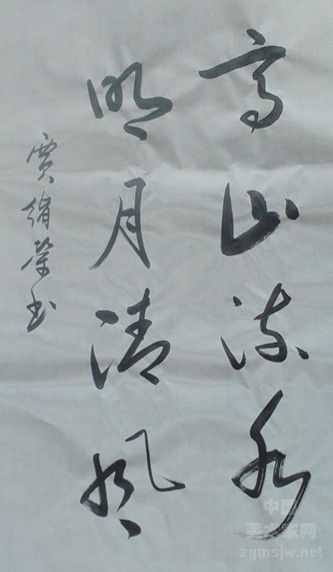 高山流水
明月清风
贾绪荣书
中国
美术家网
zgmsjw.net